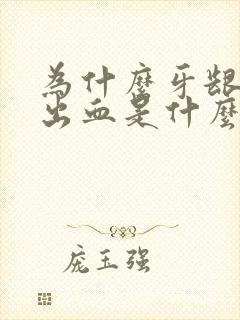 为什麼牙龈
出血是什麼
庞玉强